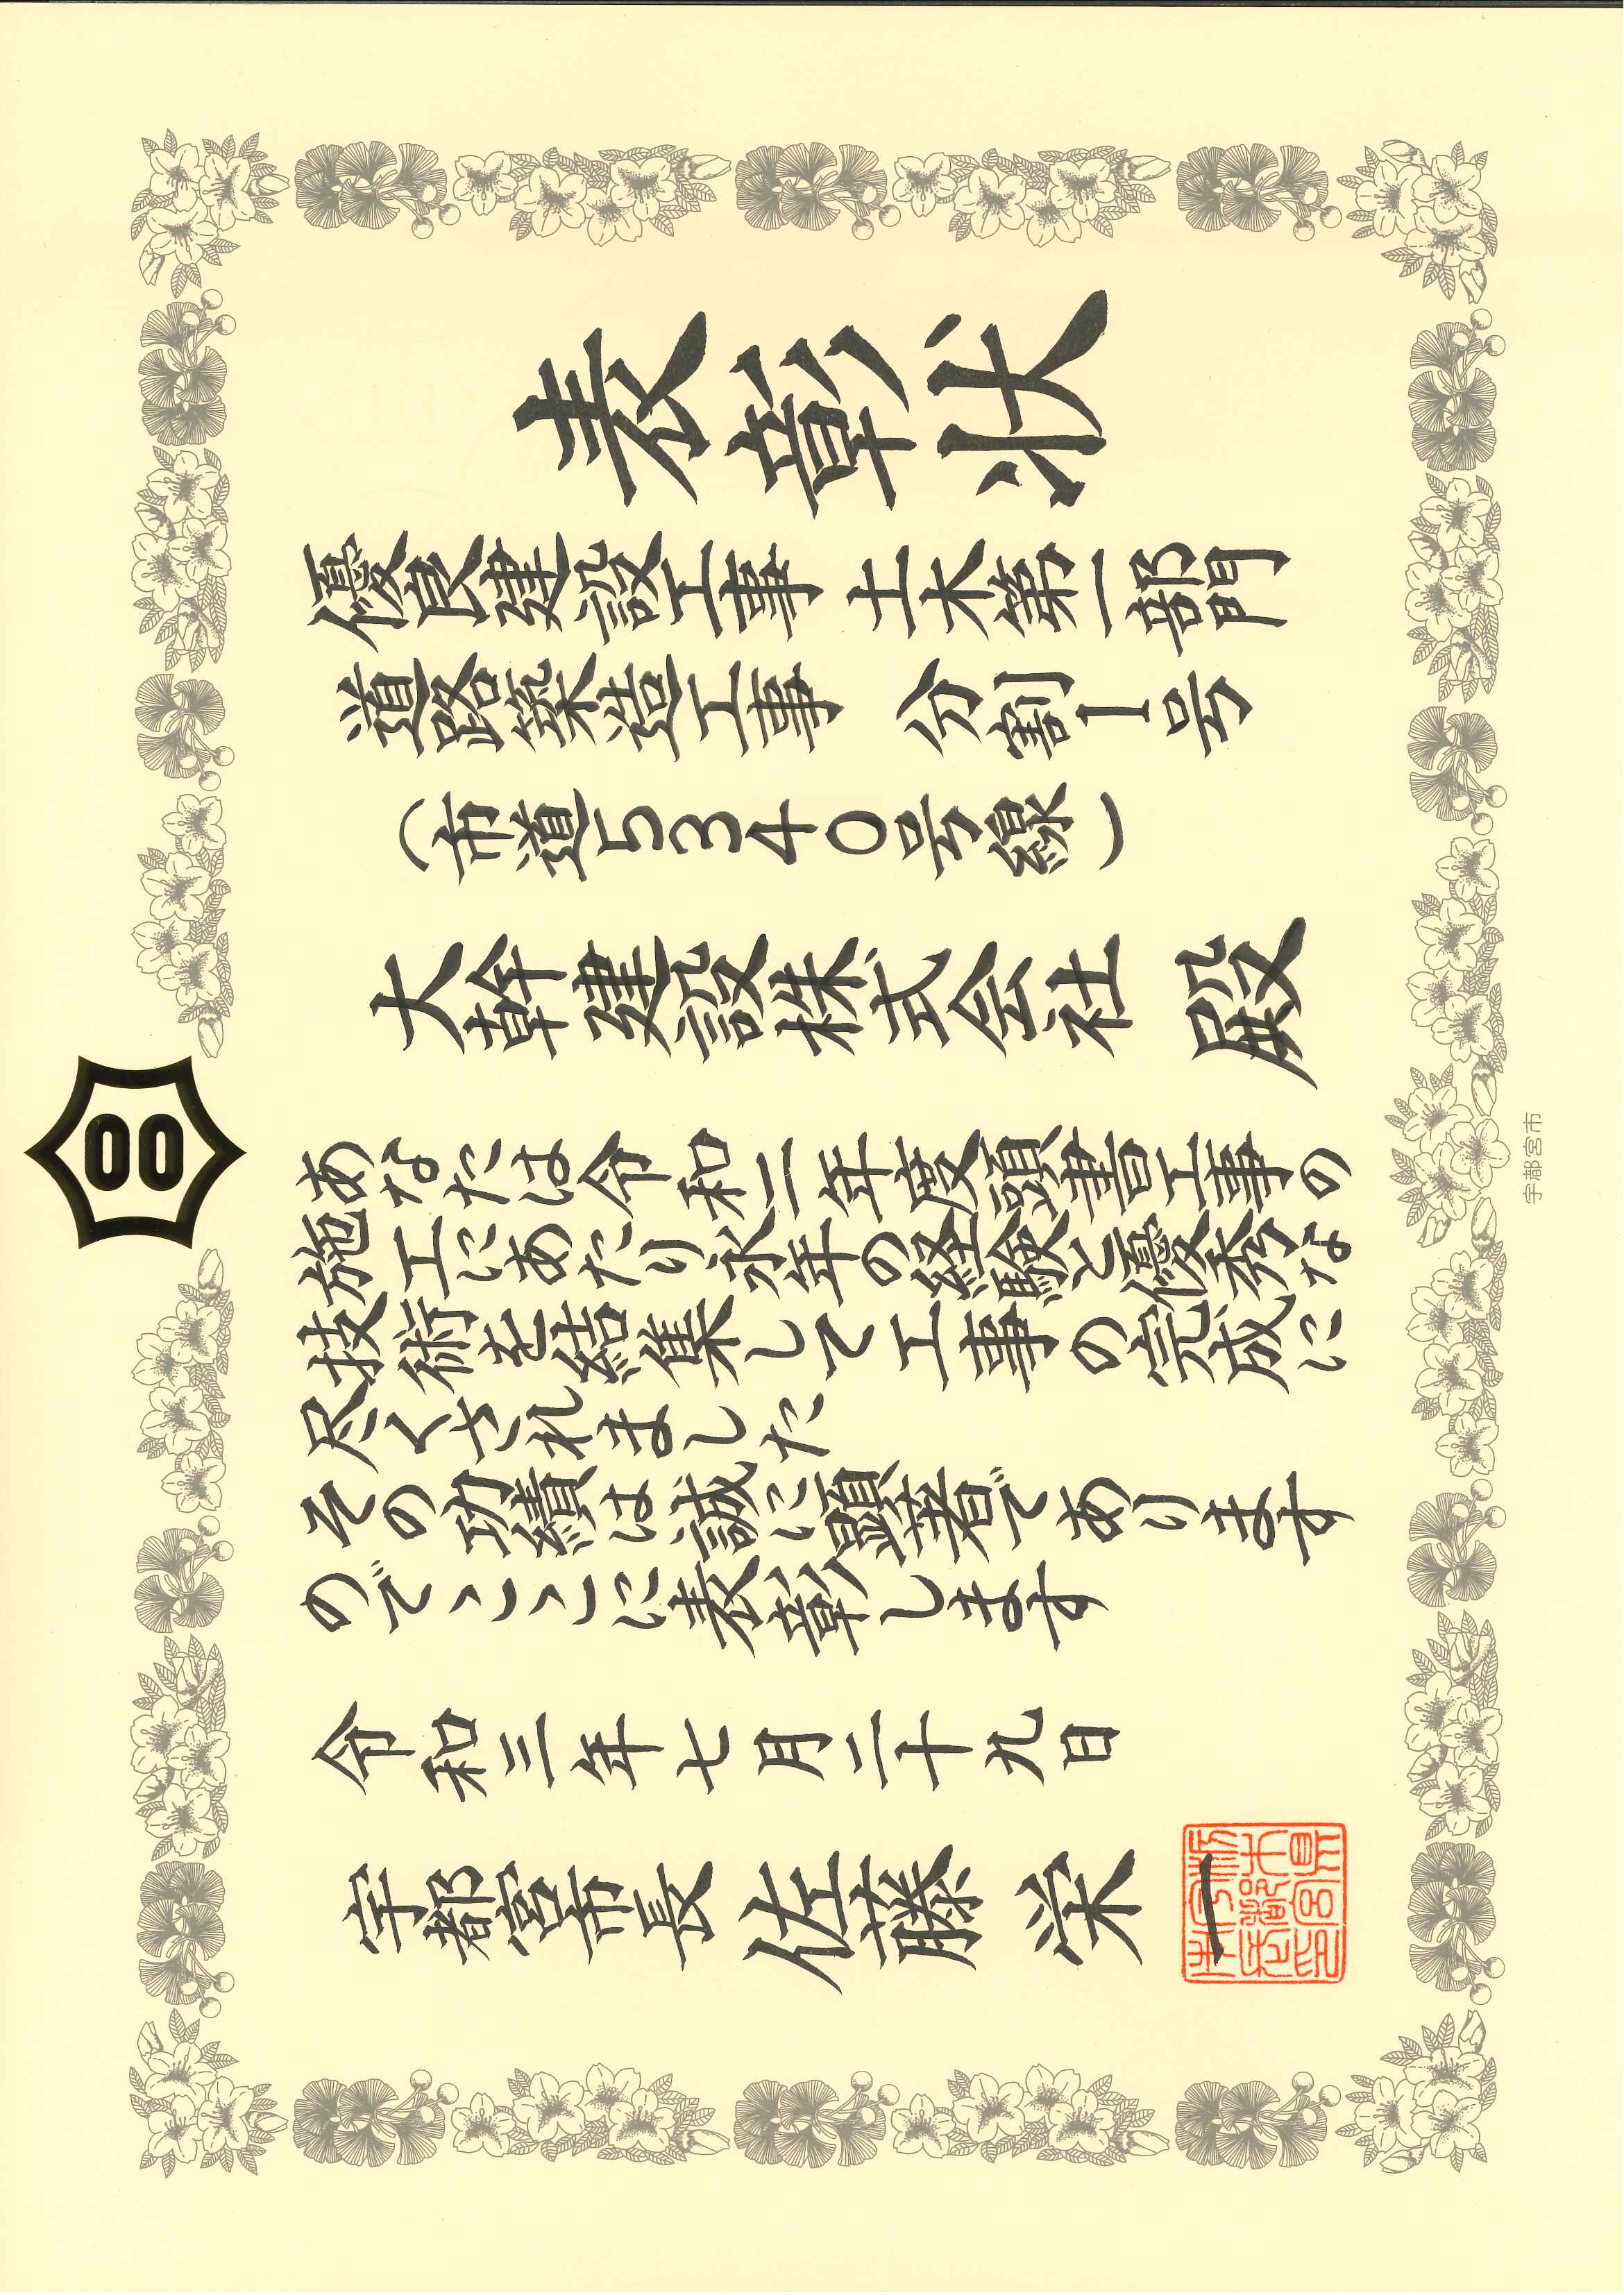 表彰状
優良建設工事 土木第一部門
道路築造工事 分割1号
（市道5340号線）
大幹建設株式会社 殿
あなたは令和二年度頭書工事の
施工にあたり永年の経験と優秀な
技術を結集して工事の完成に
尽くされました
その功績は誠に顕著であります
のでここに表彰します
令和三年七月二十九日
宇都宮市長 佐藤栄一
宇都宮市